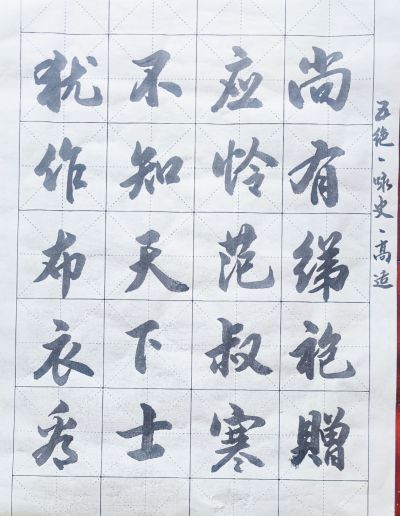 五绝、咏史、高适
尚有绨袍赠
应怜范叔寒
不知天下士
犹作布衣看